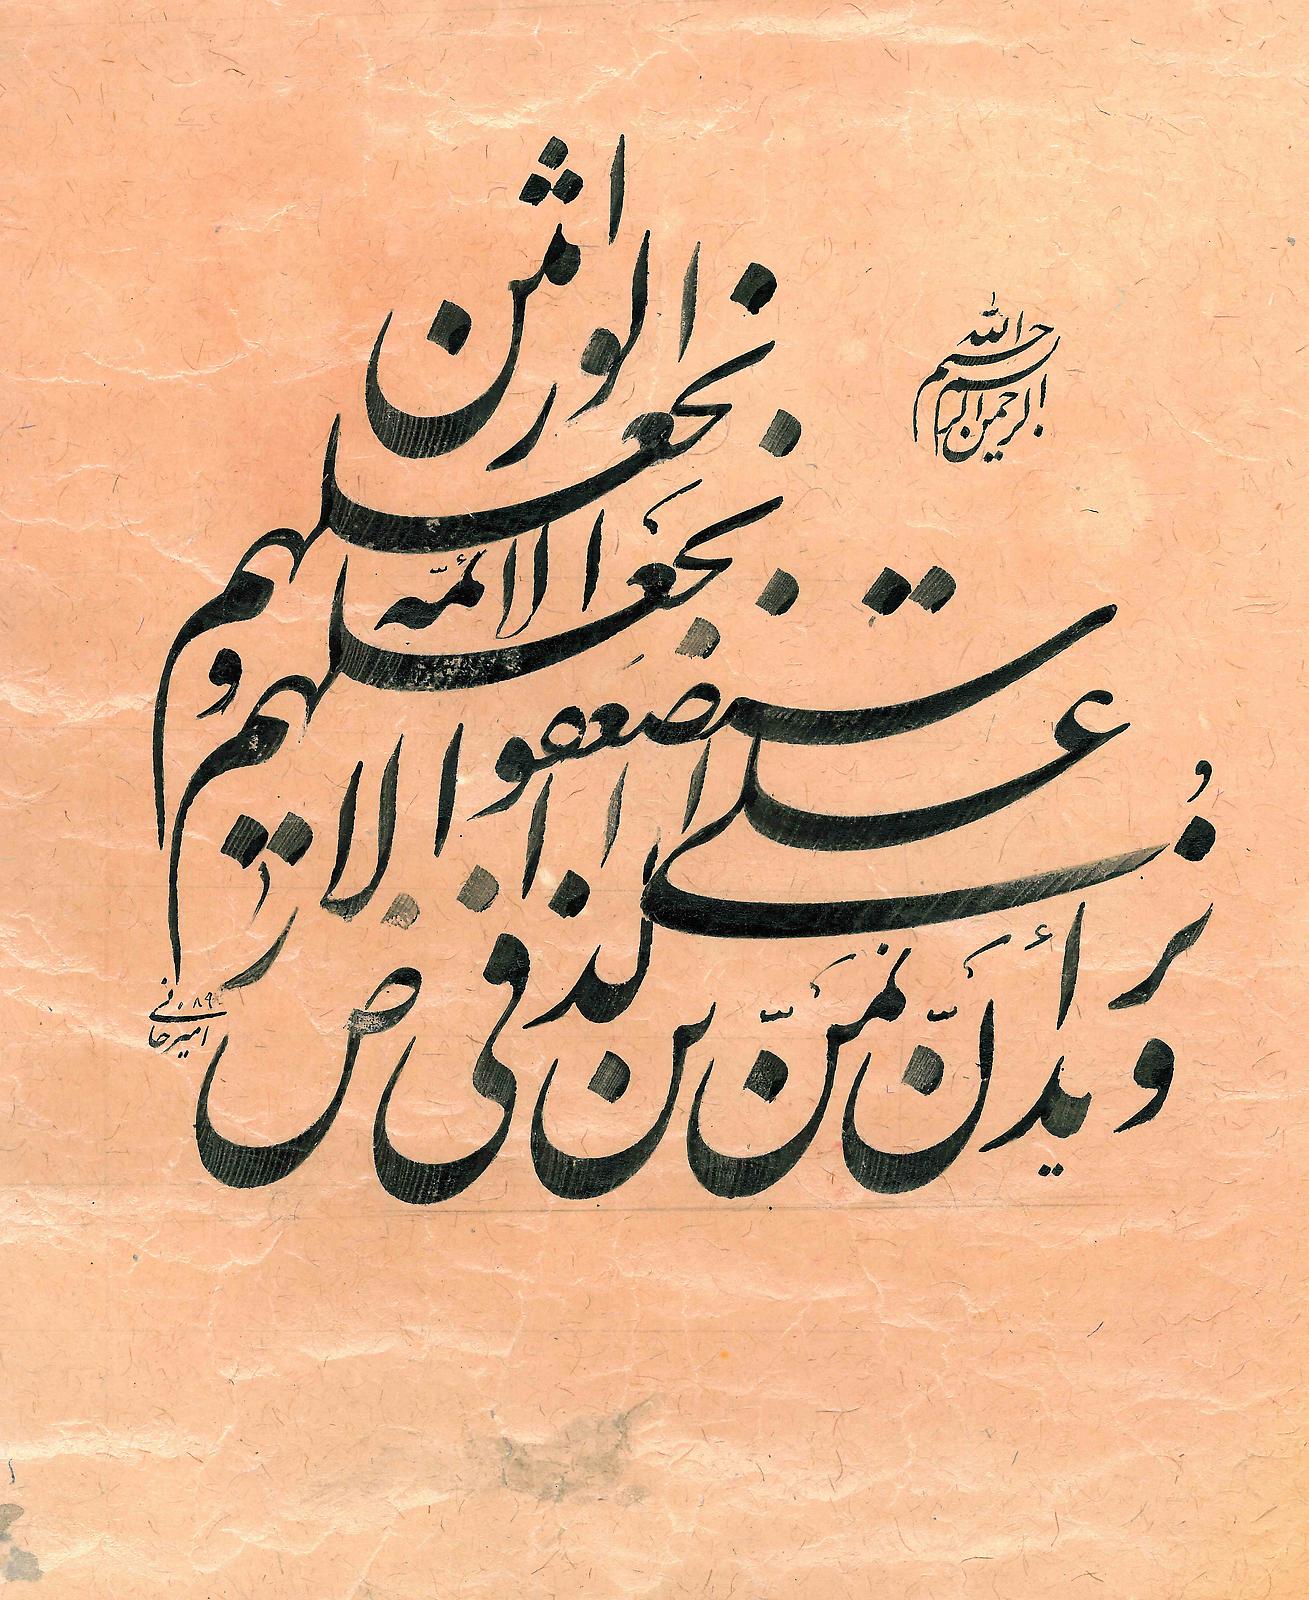 بسم الله الرحمن الرحیم
و نُریدُ أَن نَّمُنَّ عَلَی الذین استضعفوا فی الارض
و نجعلهم الأئمّه
و نجعلهم الوارثین
امیرخانی ۸۹